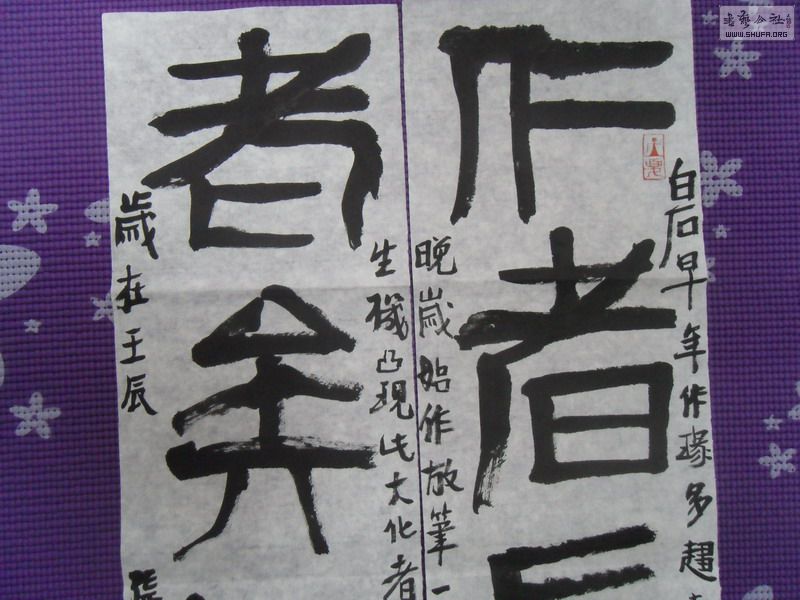 白石早年作瑑多趨
作者
晚歲始作放筆一
生機凸現此大化者
老矣
歲在壬辰
書藝公社
WWW.SHUFA.ORG